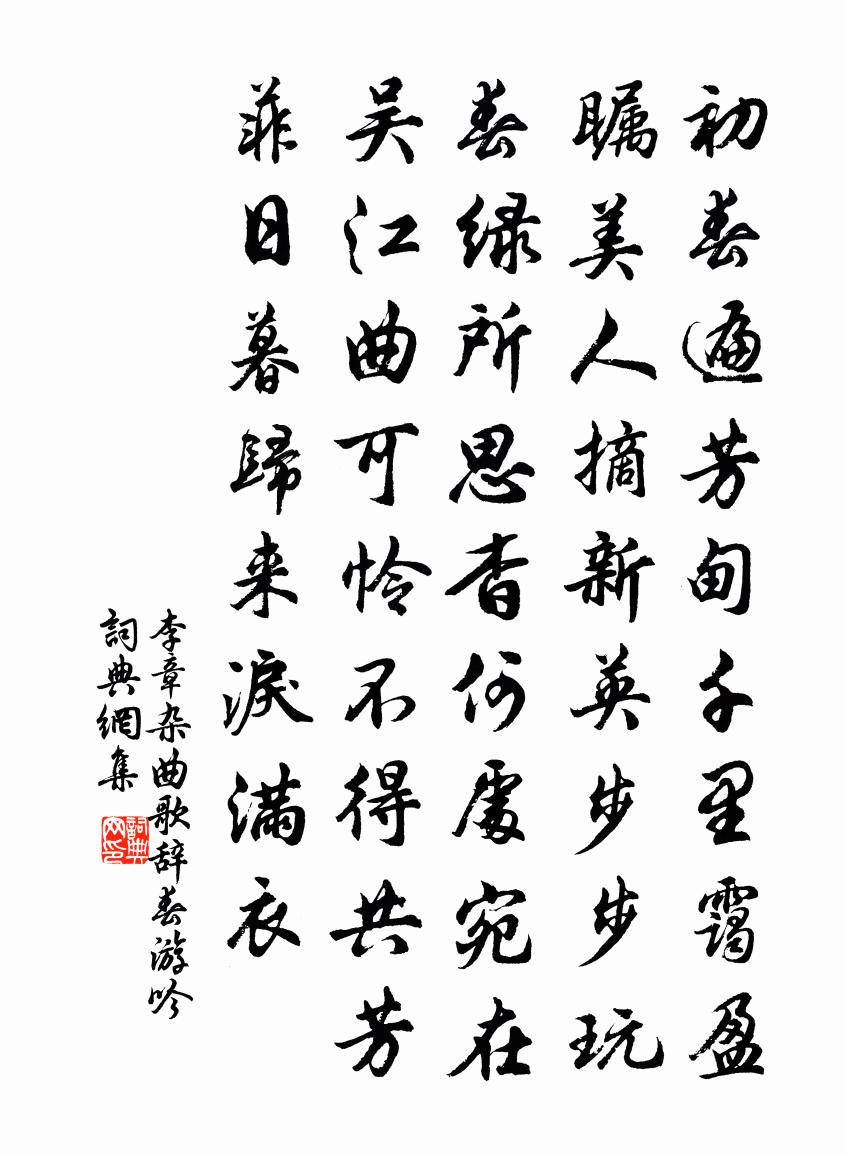 初春遍芳甸千里靄盈
瞩美人摘新英步步玩
春绿所思杳何處宛在
吴江曲可怜不得共芳
菲日暮歸来淚满衣
李章杂曲歌辞春游吟
詞典網集
詞典网印